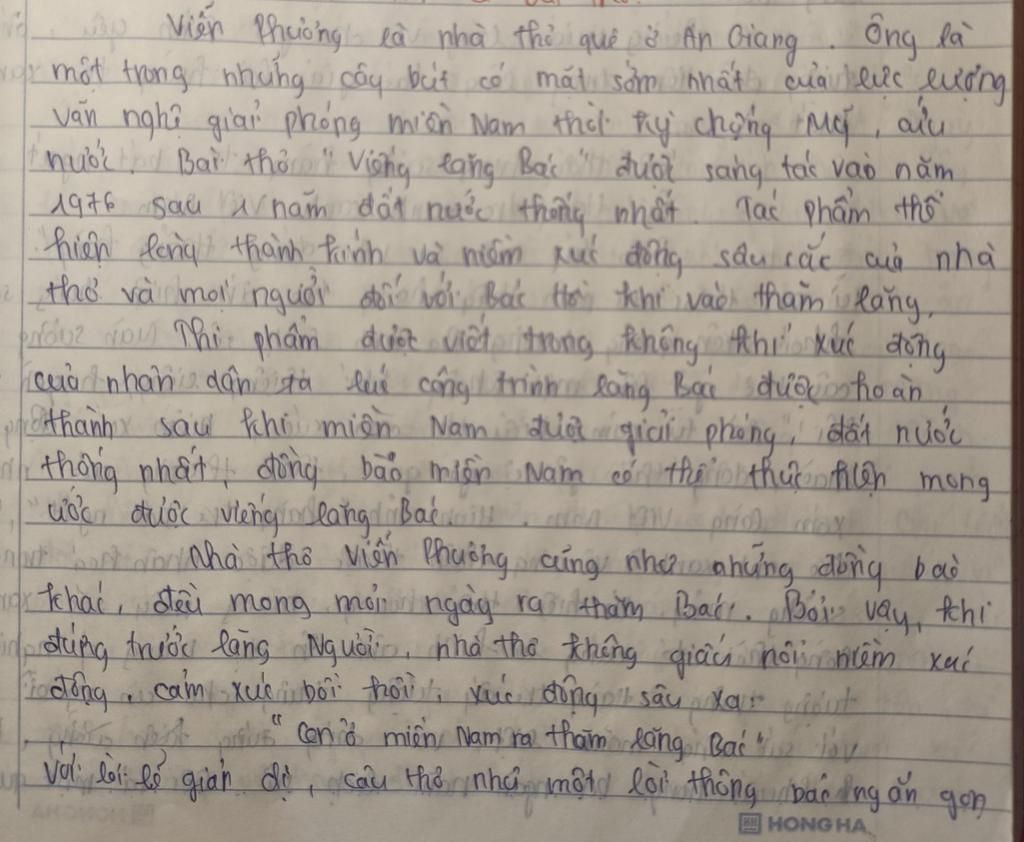 Viễn Phương là nhà thơ quê ở An Giang. Ông là
một trong những cây bút có mặt sớm nhất của lực lượng
văn nghệ giải phóng miền Nam thời kỳ chống Mỹ, cứu
nước. Bài thơ "Viếng lăng Bác" được sáng tác vào năm
1976 sau 1 năm đất nước thống nhất. Tác phẩm thể
hiện lòng thành kính và niềm xúc động sâu sắc của nhà
thơ và mọi người đối với Bác Hồ khi vào thăm lăng.
Thi phẩm được viết trong không khí xúc động
của nhân dân ta lúc công trình lăng Bác được hoàn
thành sau khi miền Nam được giải phóng, đất nước
thống nhất, đồng bào miền Nam có thể thực hiện mong
ước được viếng lăng Bác.
Nhà thơ Viễn Phương cũng như những đồng bào
khác, đều mong mỏi ngày ra thăm Bác. Bởi vậy, khi
đứng trước lăng Người, nhà thơ không giấu nổi niềm xúc
động, cảm xúc bồi hồi, xúc động sâu xa:
"Con ở miền Nam ra thăm lăng Bác"
Với lời lẽ giản dị, câu thơ như một lời thông báo ngắn gọn
HONG HA